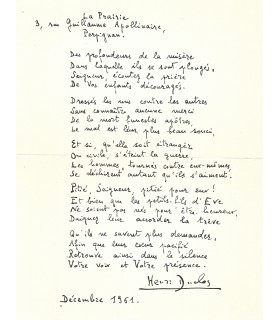 La Prairie
3, rue Guillaume Apollinaire,
Perpignan.
Des profondeurs de la misère
Dans laquelle ils se sont plongés,
Seigneur, écoutez la prière
De Vos enfants découragés.
Dressés les uns contre les autres
Sans connaître aucune merci
De la mort funestes apôtres,
Le mal est leur plus beau souci,
Et si, qu'elle soit étrangère
Ou civile, s'éteint la guerre,
Les hommes, tournés contre eux-mêmes
Se déchirent autant qu'ils s'aiment.
Pitié, Seigneur, pitié pour eux !
Et bien que les petits-fils d'Eve
Ne soient pas nés pour être heureux,
Daignez leur accorder la trève
Qu'ils ne savent plus demander,
Afin que leur cœur pacifié
Retrouve ainsi dans le silence
Votre voix et Votre présence.
Henri Duclos
Décembre 1961.